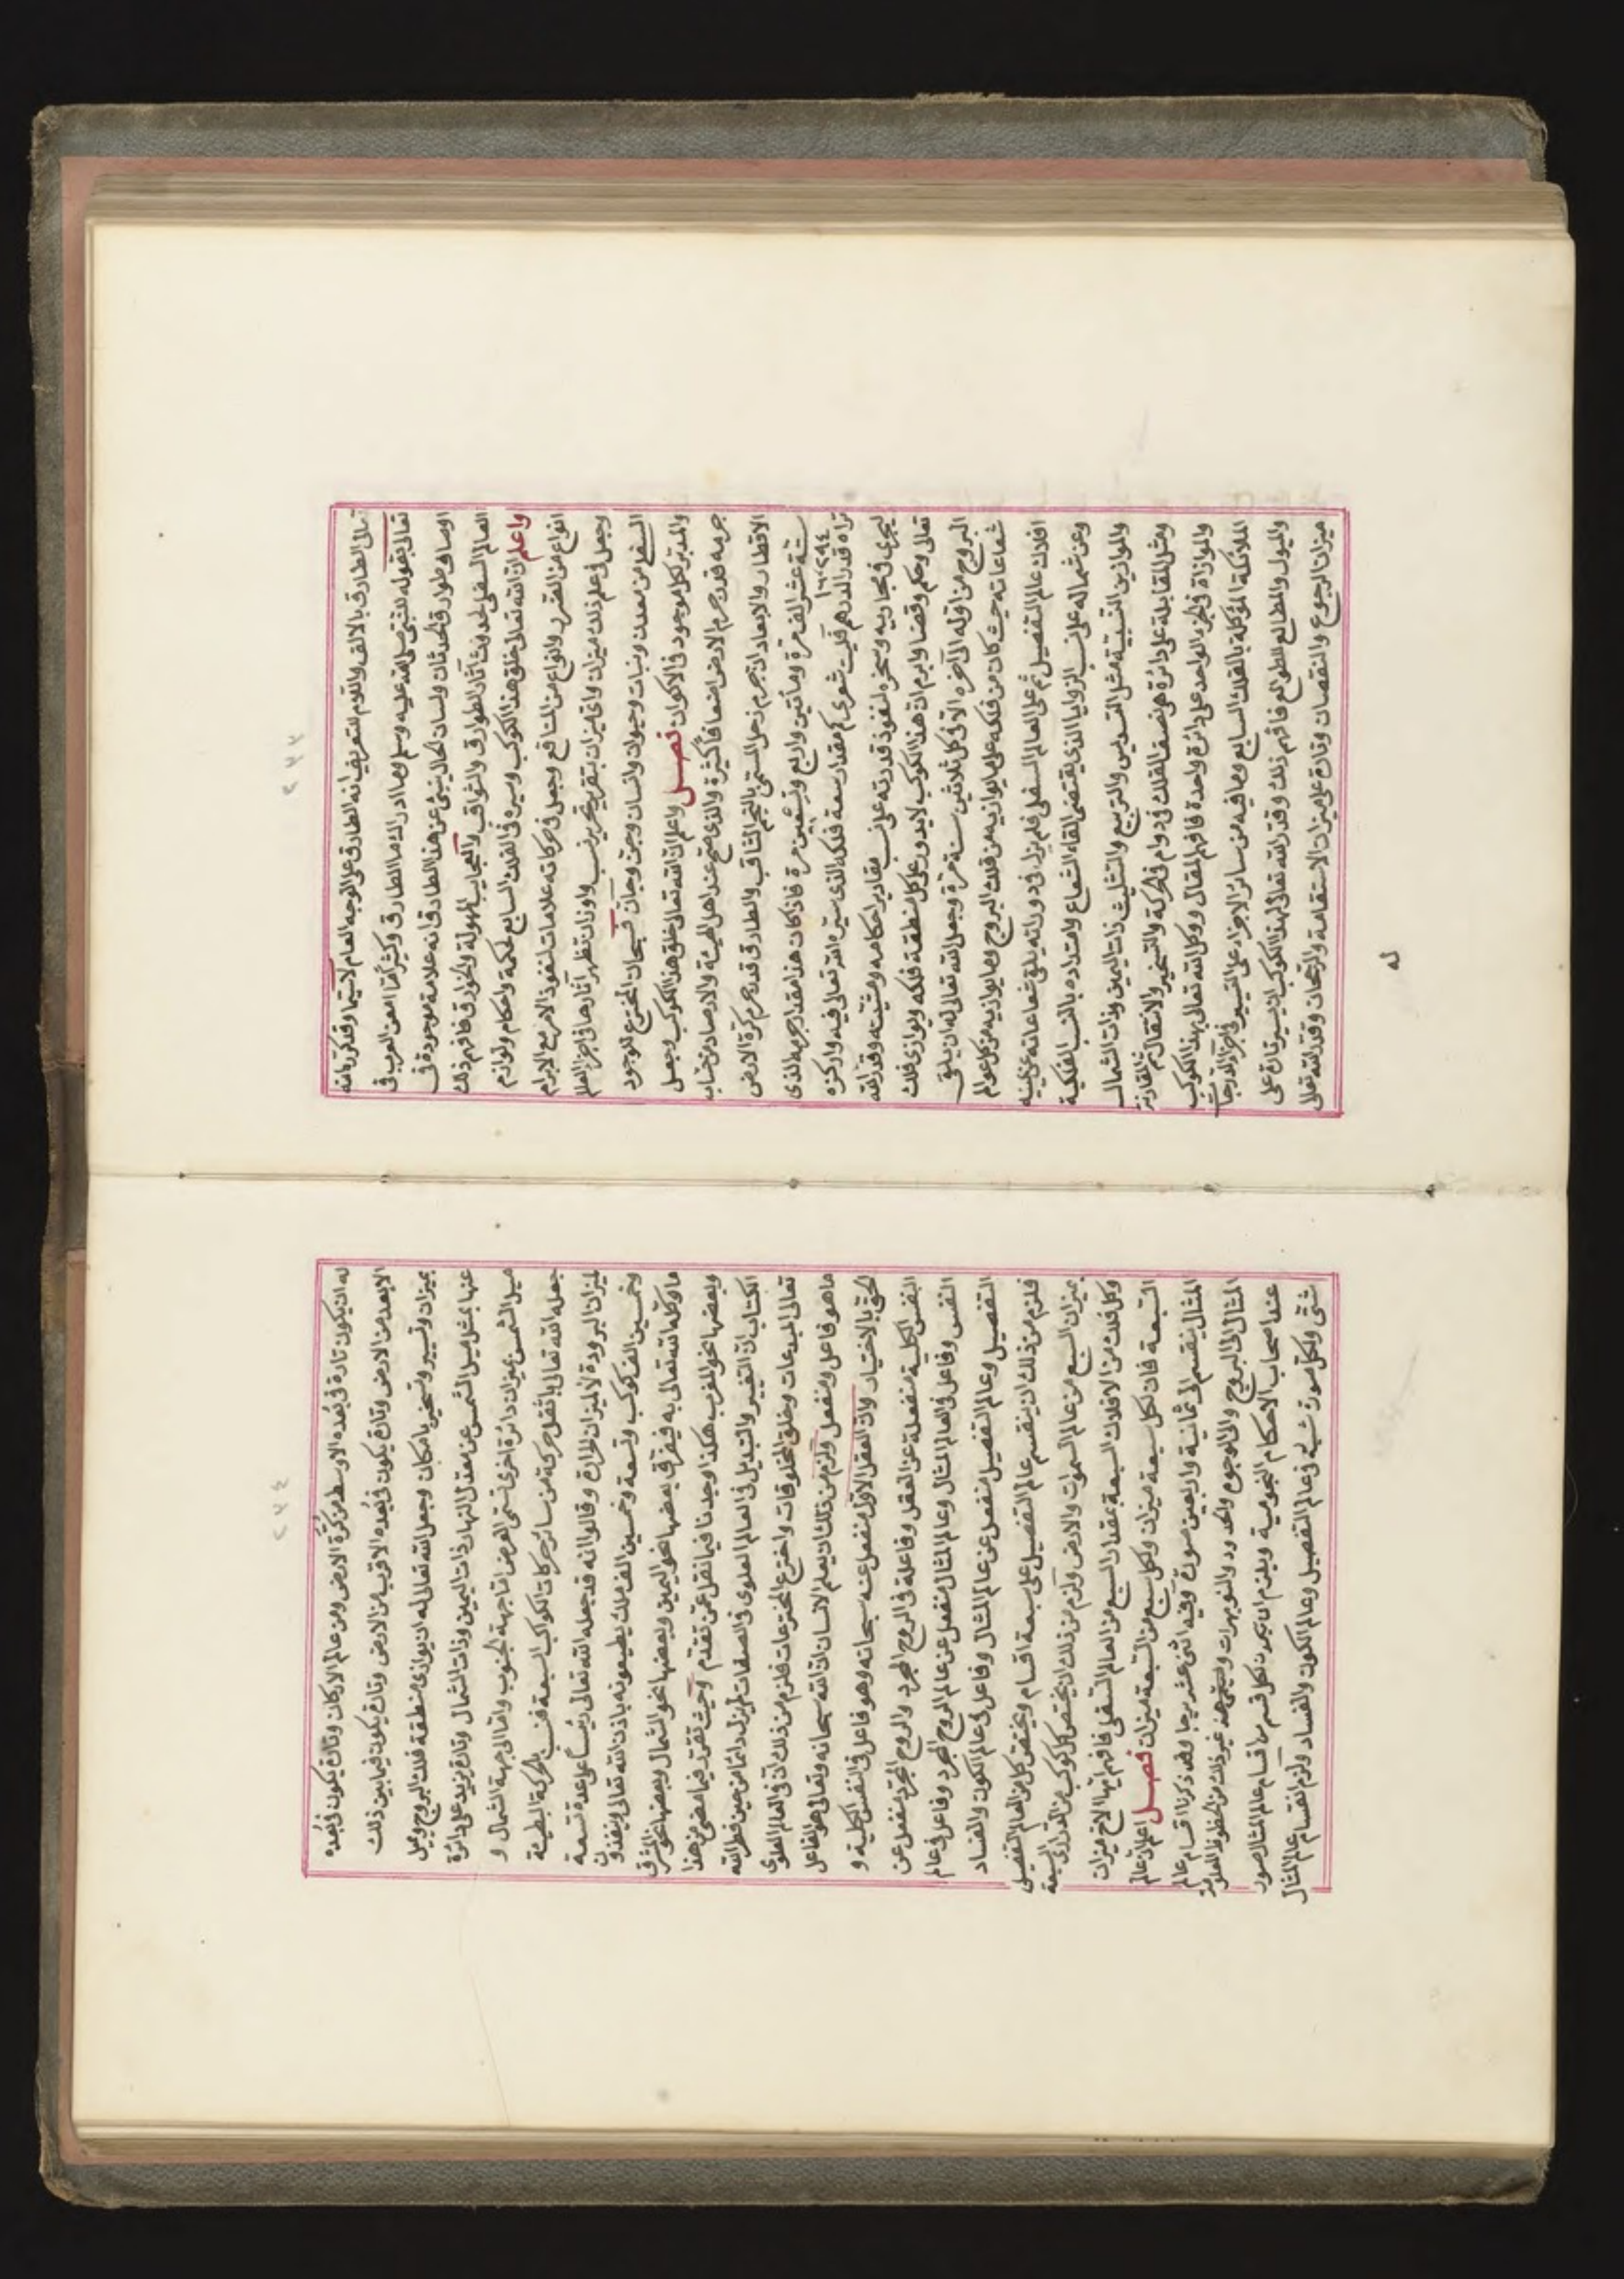 تعالى الطارق بالالف واللام للتعريف انه الطارق على الوجه العام لاسيما وقد كرره الله
تعالى بقوله للنبي صلى الله عليه وسلم وما ادراك ما الطارق وكثيرا ما امعن العرب في
اوصاف طوارق الحدثان ولسان الحال ينبئ عن هذا الطارق انه علامة موجودة في
العالم السفلي لحدوث آثار الطوارق والنواقب والعجايب المهولة والخوارق فافهم ذلك
واعلم ان الله تعالى خلق هذا الكوكب وسيره في الفلك السابع لحكمة واحكام ولوازم
انواع من الضرر وانواع من المنافع وجعل في حركاته علامات لنفوذ الامر مع الابرام
وجعل في علم ذلك ميزان واي ميزان بتقرير تحرير نسب واوزان تظهر آثارها في اجزاء العالم
السفلي من معدن ونبات وحيوان وانسان وجن وجان فسبحان المخترع للوجود
والمدبر لكل موجود في الاكوان فصل واعلم ان الله تعالى خلق هذا الكوكب وجعل
جرمه قدر جرم الارض اضعافا كثيرة والذي صح عند اهل الهيئة والارصاد من حساب
الاقطار والابعاد ان جرم زحل المسمى بالنجم الثاقب والطارق قدر جرم كرة الارض
ستة عشر الف مرة ومأتين واربع وتسعين مرة فاذا كان هذا مقدار جرمه الذي
١٦٢٩٤
تراه قدر الدرهم فليت شعري كم مقدار سعة فلكه الذي سيره الله تعالى فيه واركزه
ليجري في مجاريه وسخره لنفوذ قدرته على نسب مقادير احكامه ومشيئته وقدر الله
تعالى وحكم وقضا وابرم ان هذا الكوكب لا يدور على كل منطقة فلكه ويوازي فلك
البروج من اوله الى آخره الا في كل ثلاثين سنة مرة وجعل الله تعالى له ان يلقى
شعاعاته حيث كان من فلكه على ما يوازيه من فلك البروج وما يوازيه من كل عوالم
افلاك عالم التفصيل ثم على العالم السفلي فلم يزل في دورانه يلقى شعاعاته عن يمينه
وعن شماله على نسب الزوايا الذي يقتضي القاء الشعاع وامتداده بالنسب الفلكية
والموازين النسبية مثل التسديس والتربيع والتثليث ذات اليمين وذات الشمال
ومثل المقابلة على دائرة هي نصف الفلك في دوام في الحركة والتسخير والانتقال ثم المقارنة
والموازاة في الجزء الواحد على دائرة واحدة فافهم المقال ووكل الله تعالى بهذا الكوكب
الملائكة الموكلة بالفلك السابع وما فيه من سائر الاجزاء على التسيير واجزاء الدرجات
والميول والمطالع للطوالع فافهم ذلك وقدر الله تعالى لهذا الكوكب ان يسير تارة على
ميزان الرجوع والنقصان وتارة على ميزان الاستقامة والرجحان وقدر الله تعالى
له
له ان يكون تارة في بعده الاوسط من كرة الارض ومن عالم الاركان وتارة يكون في بعده
الابعد من الارض وتارة يكون في بعده الاقرب من الارض وتارة يكون فيما بين ذلك
بميزان وتسيير وتسخير بامكان وجعل الله تعالى له ان يوازي منطقة فلك البروج ويميل
عنها بمثل ميل الشمس عن معدل النهار ذات اليمين وذات الشمال وتارة يزيد على دائرة
ميل الشمس بميزان دائرة اخرى تسمى العرض اما جهة الجنوب واما الى جهة الشمال و
جعله الله تعالى اثقل حركة من سائر حركات الكواكب السبعة فنسب بالحركة البطيئة
لميزان البرودة لا لميزان الحرارة وقالوا انه قد جعله الله تعالى رئيسا على عدة تسعة
وخمسين الف كوكب وتسعة وخمسين الف ملك يطيعونه باذن الله تعالى وينفذون
ما وكله الله تعالى به فيفرق بعضها نحو اليمين وبعضها نحو الشمال وبعضها نحو المشرق
وبعضها نحو المغرب هكذا وجدنا فيما نقل عمن تقدم وحيث تقرر فيما مضى من هذا
الكتاب ان التغيير والتبديل في العالم العلوي في الصفات لم يزل دائما من حين فطر الله
تعالى المبدعات وخلق المخلوقات واخترع المخترعات فلزم من ذلك ان في العالم العلوي
ما هو فاعل ومنفعل ولزم من ذلك ان يعلم الانسان ان الله سبحانه وتعالى هو الفاعل
الحق بالاختيار وان العقل الاول منفعل عنه سبحانه وهو فاعل في النفس الكلية و
النفس الكلية منفعلة عن العقل وفاعلة في الروح المجرد والروح المجرد منفعل عن
النفس وفاعل في العالم المثال وعالم المثال منفعل عن عالم الروح المجرد وفاعل في عالم
التفصيل وعالم التفصيل منفعل عن عالم المثال وفاعل في عالم الكون والفساد
فلزم من ذلك ان ينقسم عالم التفصيل على سبعة اقسام ويختص كل من العالم التفصيلي
بميزان السبع من عالم السموات والارض ولزم من ذلك ان يختص كل كوكب من الدراري السبعة
وكل فلك من الافلاك السبعة بمقدار السبع من العالم السفلي فافهم ايها الاخ ميزان
السبعة فان لكل سبعة ميزان ولكل سبع من السبعة ميزان فصل اعلم ان عالم
المثال ينقسم الى ثمانية واربعين صورة وفيه اثنى عشر برجا وقد ذكرنا اقسام عالم
المثال الى البروج والى الوجوه والحدود والنوبهرات وغير ذلك من الحظوظ المعلومة
عند اصحاب الاحكام النجومية ويلزم ان يحرك لكل قسم من اقسام عالم المثال صور
شتى ولكل صورة شبه في عالم التفصيل وعالم الكون والفساد ولزم انقسام عالم المثال